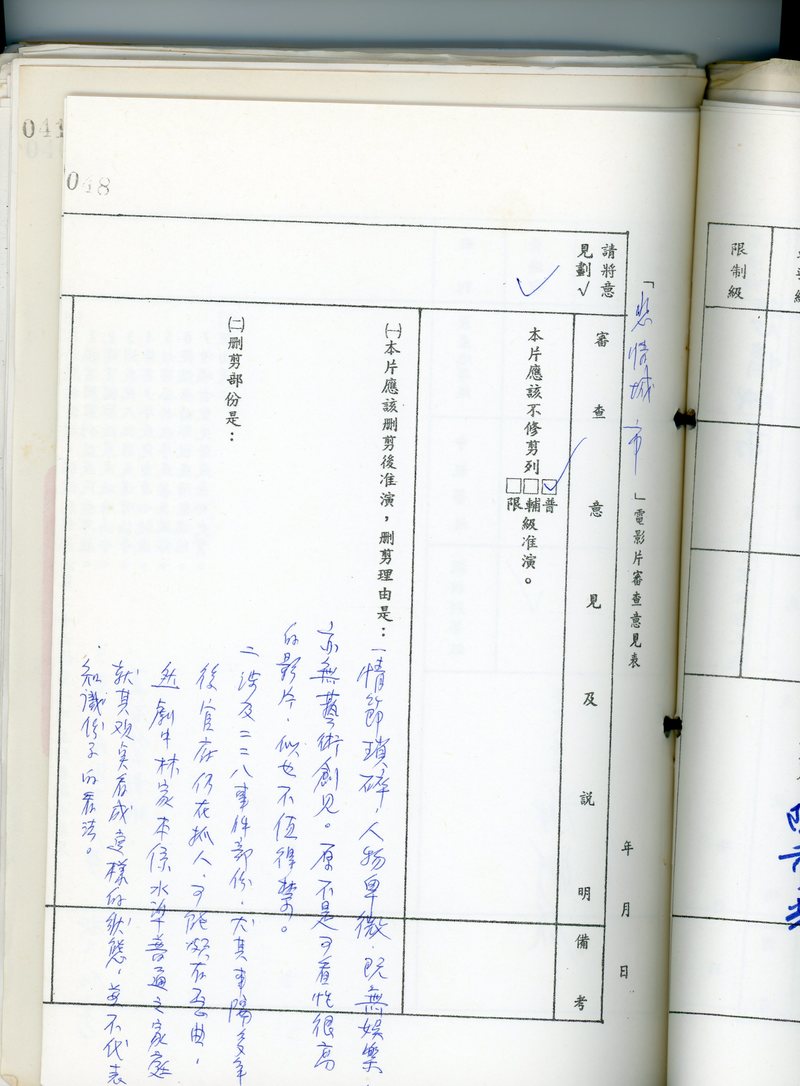 041
048
「悲情城市」電影片審查意見表 年 月 日
請將意見劃√
審查意見及說明
備考
√
本片應該不修剪列
□普
□輔
□限
級准演。
㈠本片應該刪剪後准演，刪剪理由是：
㈡刪剪部份是：
一情節瑣碎，人物卑微，既無娛樂，
亦無藝術創見。原不是可看性很高
的影片，似也不值得禁。
二涉及二二八事件部份，尤其事隔多年
後官府仍在抓人，可能頗有歪曲，
然劇中林家本係水準普通之家庭
就其观点看成這樣的狀態，並不代表
知識份子的看法。
限制級